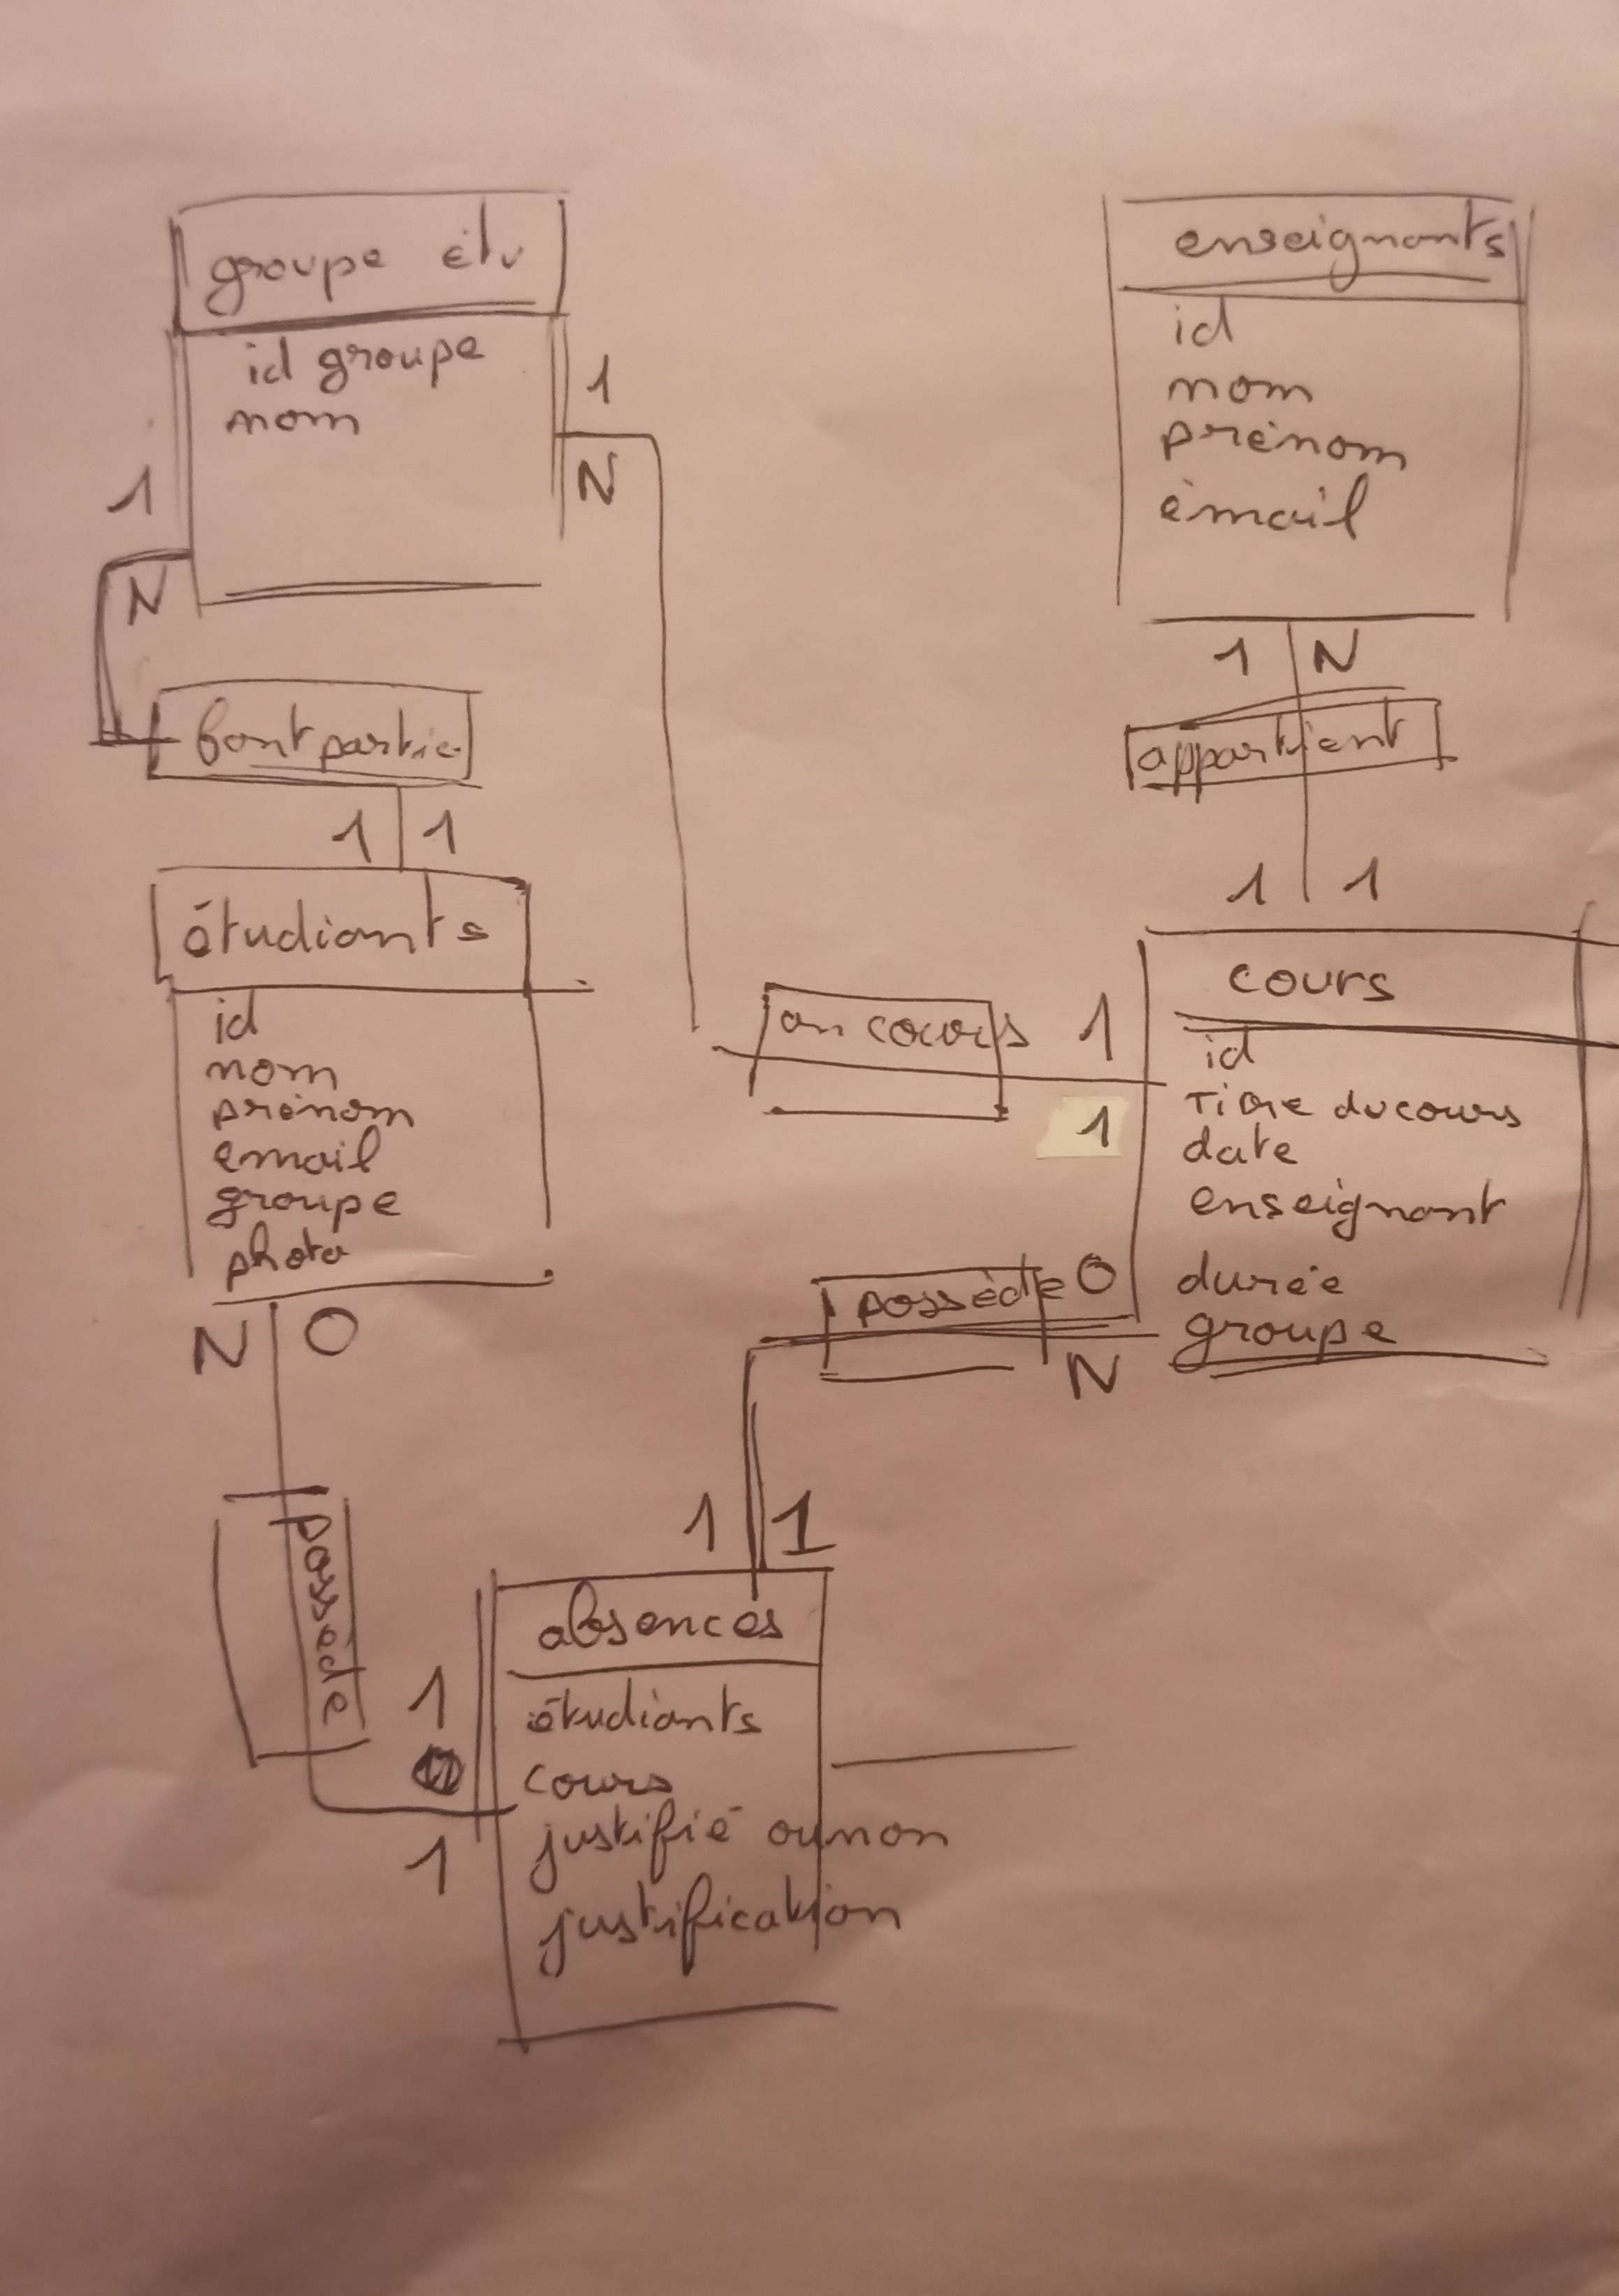 groupe étu
id groupe
nom
1
N
1
N
font partie
1 1
étudiants
id
nom
prénom
email
groupe
photo
N O
possède
1
1
enseignants
id
nom
prénom
émail
1 N
appartient
1 1
cours
id
Titre du cours
date
enseignant
durée
groupe
on cours
1
1
possède
O
N
1 1
absences
étudiants
cours
justifié ou non
justification